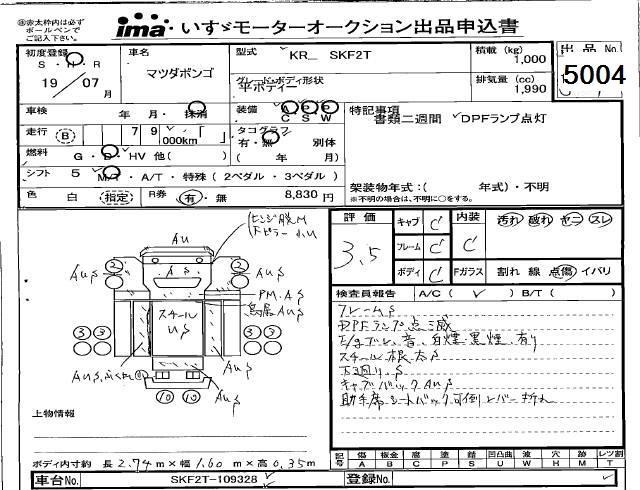 ㊟赤太枠内は必ず
ボールペンで
ご記入下さい。
ima いすゞモーターオークション出品申込書
初度登録
S・H・R
19/07月
車名
マツダボンゴ
型式
KR_ SKF2T
積載(kg)
1,000
出品No.
5004
グレード・ボディ形状
平ボディー
排気量(cc)
1,990
車検 年 月・抹消
装備 A P S
C S W
特記事項
書類二週間 DPFランプ点灯
走行 (B) 7 9 000km
タコグラフ
有・無 別体
( 年 月)
燃料 G・D・HV 他( )
シフト 5 M/T・A/T・特殊(2ペダル・3ペダル)
架装物年式:( 年式)・不明
※不明の場合は、不明に○をする。
色 白 (指定) R券 有・無 8,830円
評価
3.5
キャブ C
フレーム C
ボディ C
内装 C
汚れ 破れ ヤニ スレ
Fガラス 割れ 線 点傷 イバリ
検査員報告 A/C( ✓ ) B/T( )
フレームS
DPFランプ点滅
白煙・黒煙・有り
スチール根太S
下廻りS
キャブバックAUS
助手席シートバック可倒レバー
AU
AS
AUS
AUS
PM.AS
AUS
スチール
US
2
2
3 3
3 3
10 10
AUS
上物情報
ボディ内寸約 長2.74m×幅1.60m×高0.35m
記号 傷 A 板金 B 腐 C 塗 P 錆 S 凹凸曲 U 波 W 穴 H 欠 M レツ割 T
車台No. SKF2T-109328
登録No.